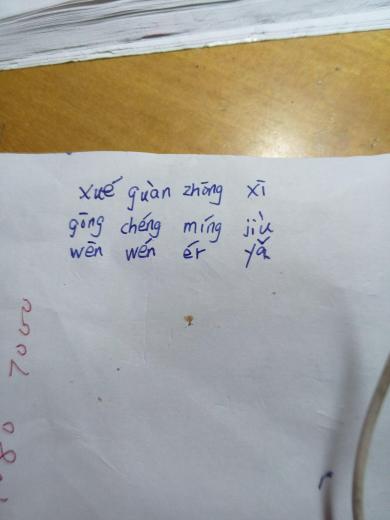 xué guàn zhōng xī
gōng chéng míng jiù
wēn wén ér yǎ
7000
80